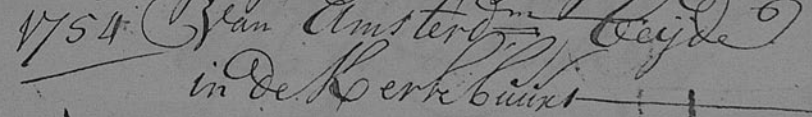 1754 Van Amsterdm beijde
in de Kerkebuurt